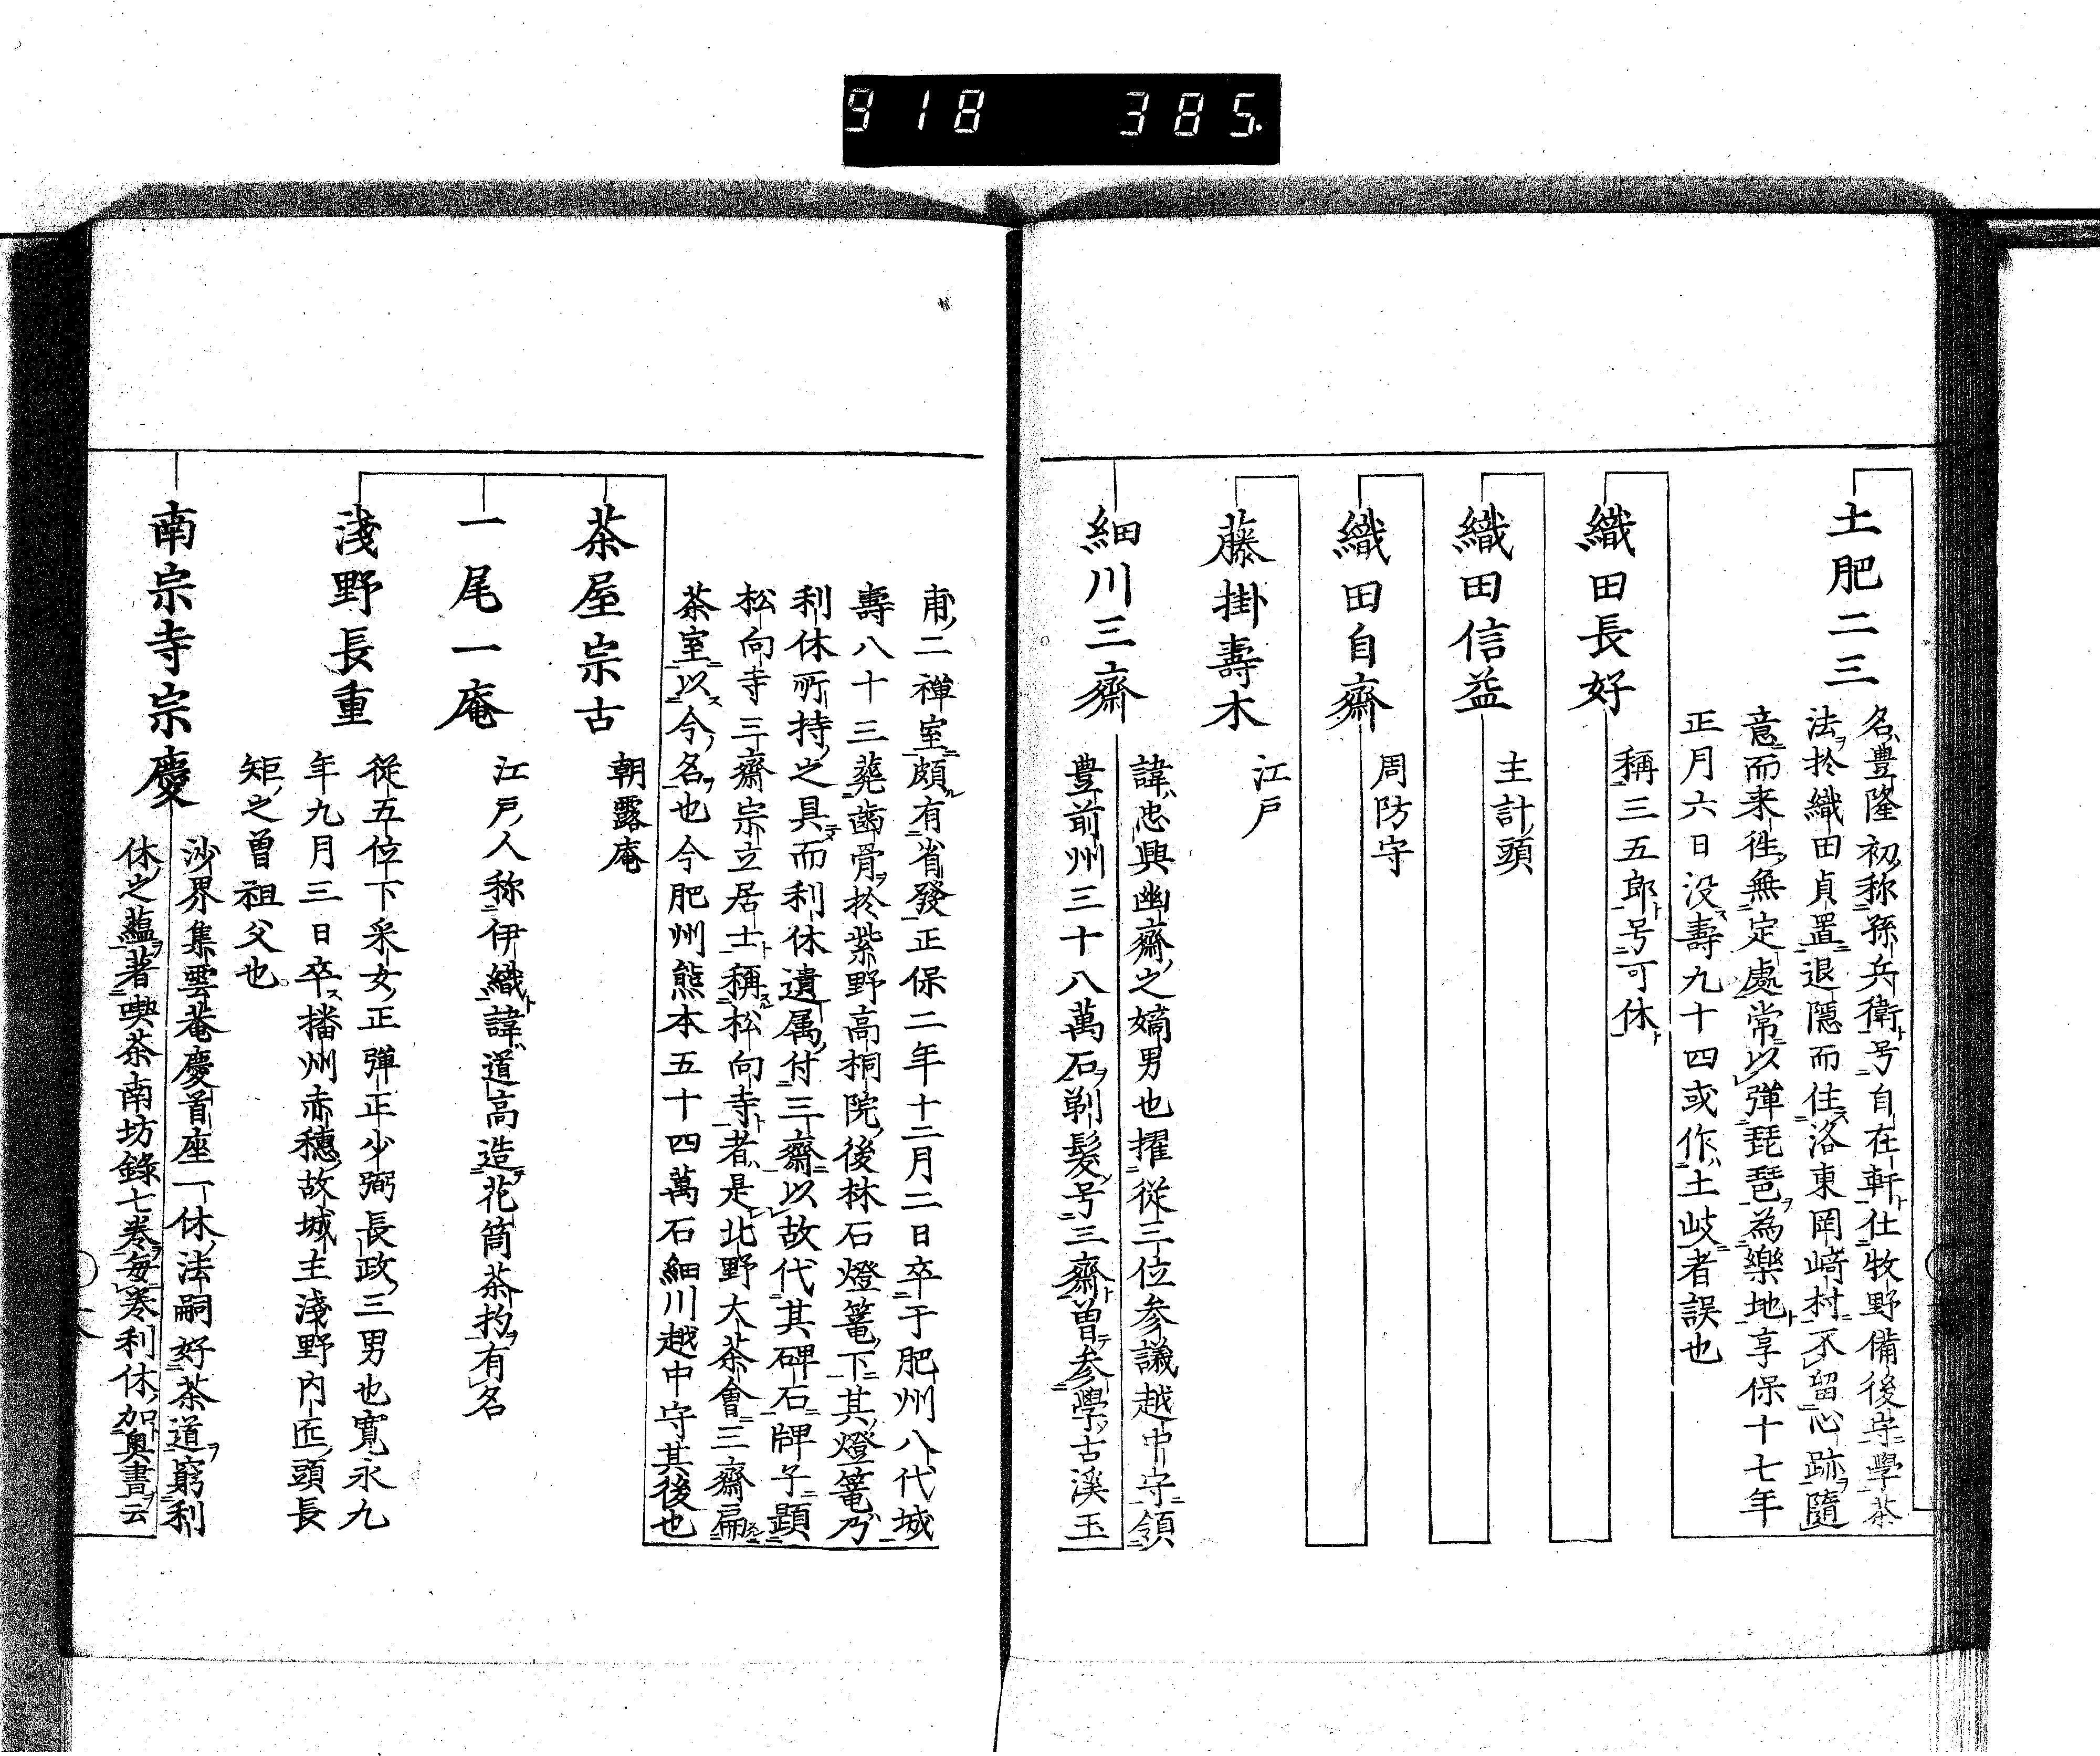 918 385.
土肥二三
名豊隆初称孫兵衛号自在軒仕牧野備後守學茶
法於織田貞置退隠而住洛東岡﨑村不留心跡隨
意而来徃無定處常以彈琵琶為樂地享保十七年
正月六日没壽九十四或作土岐者誤也
織田長好
稱三五郎号可休
織田信益
主計頭
織田自齋
周防守
藤掛壽木
江戸
細川三齋
諱忠興幽齋之嫡男也擢從三位参議越中守領
豊前州三十八萬石剃髪号三齋曽参學古溪玉
甫二禅室頗有省發正保二年十二月二日卒于肥州八代城
壽八十三葬歯骨於紫野高桐院後林石燈篭下其燈篭乃
利休所持之具而利休遺属付三齋以故代其碑石牌子題
松向寺三齋宗立居士稱松向寺者是北野大茶會三齋扁
茶室以今名也今肥州熊本五十四萬石細川越中守其後也
茶屋宗古
朝露庵
一尾一庵
江戸人称伊織諱道高造花筒茶杓有名
淺野長重
從五位下采女正彈正少弼長政三男也寛永九
年九月三日卒播州赤穗故城主淺野内匠頭長
矩之曽祖父也
南宗寺宗慶
沙界集雲菴慶首座一休法嗣好茶道窮利
休之蘊著喫茶南坊錄七巻毎巻利休加奥書云